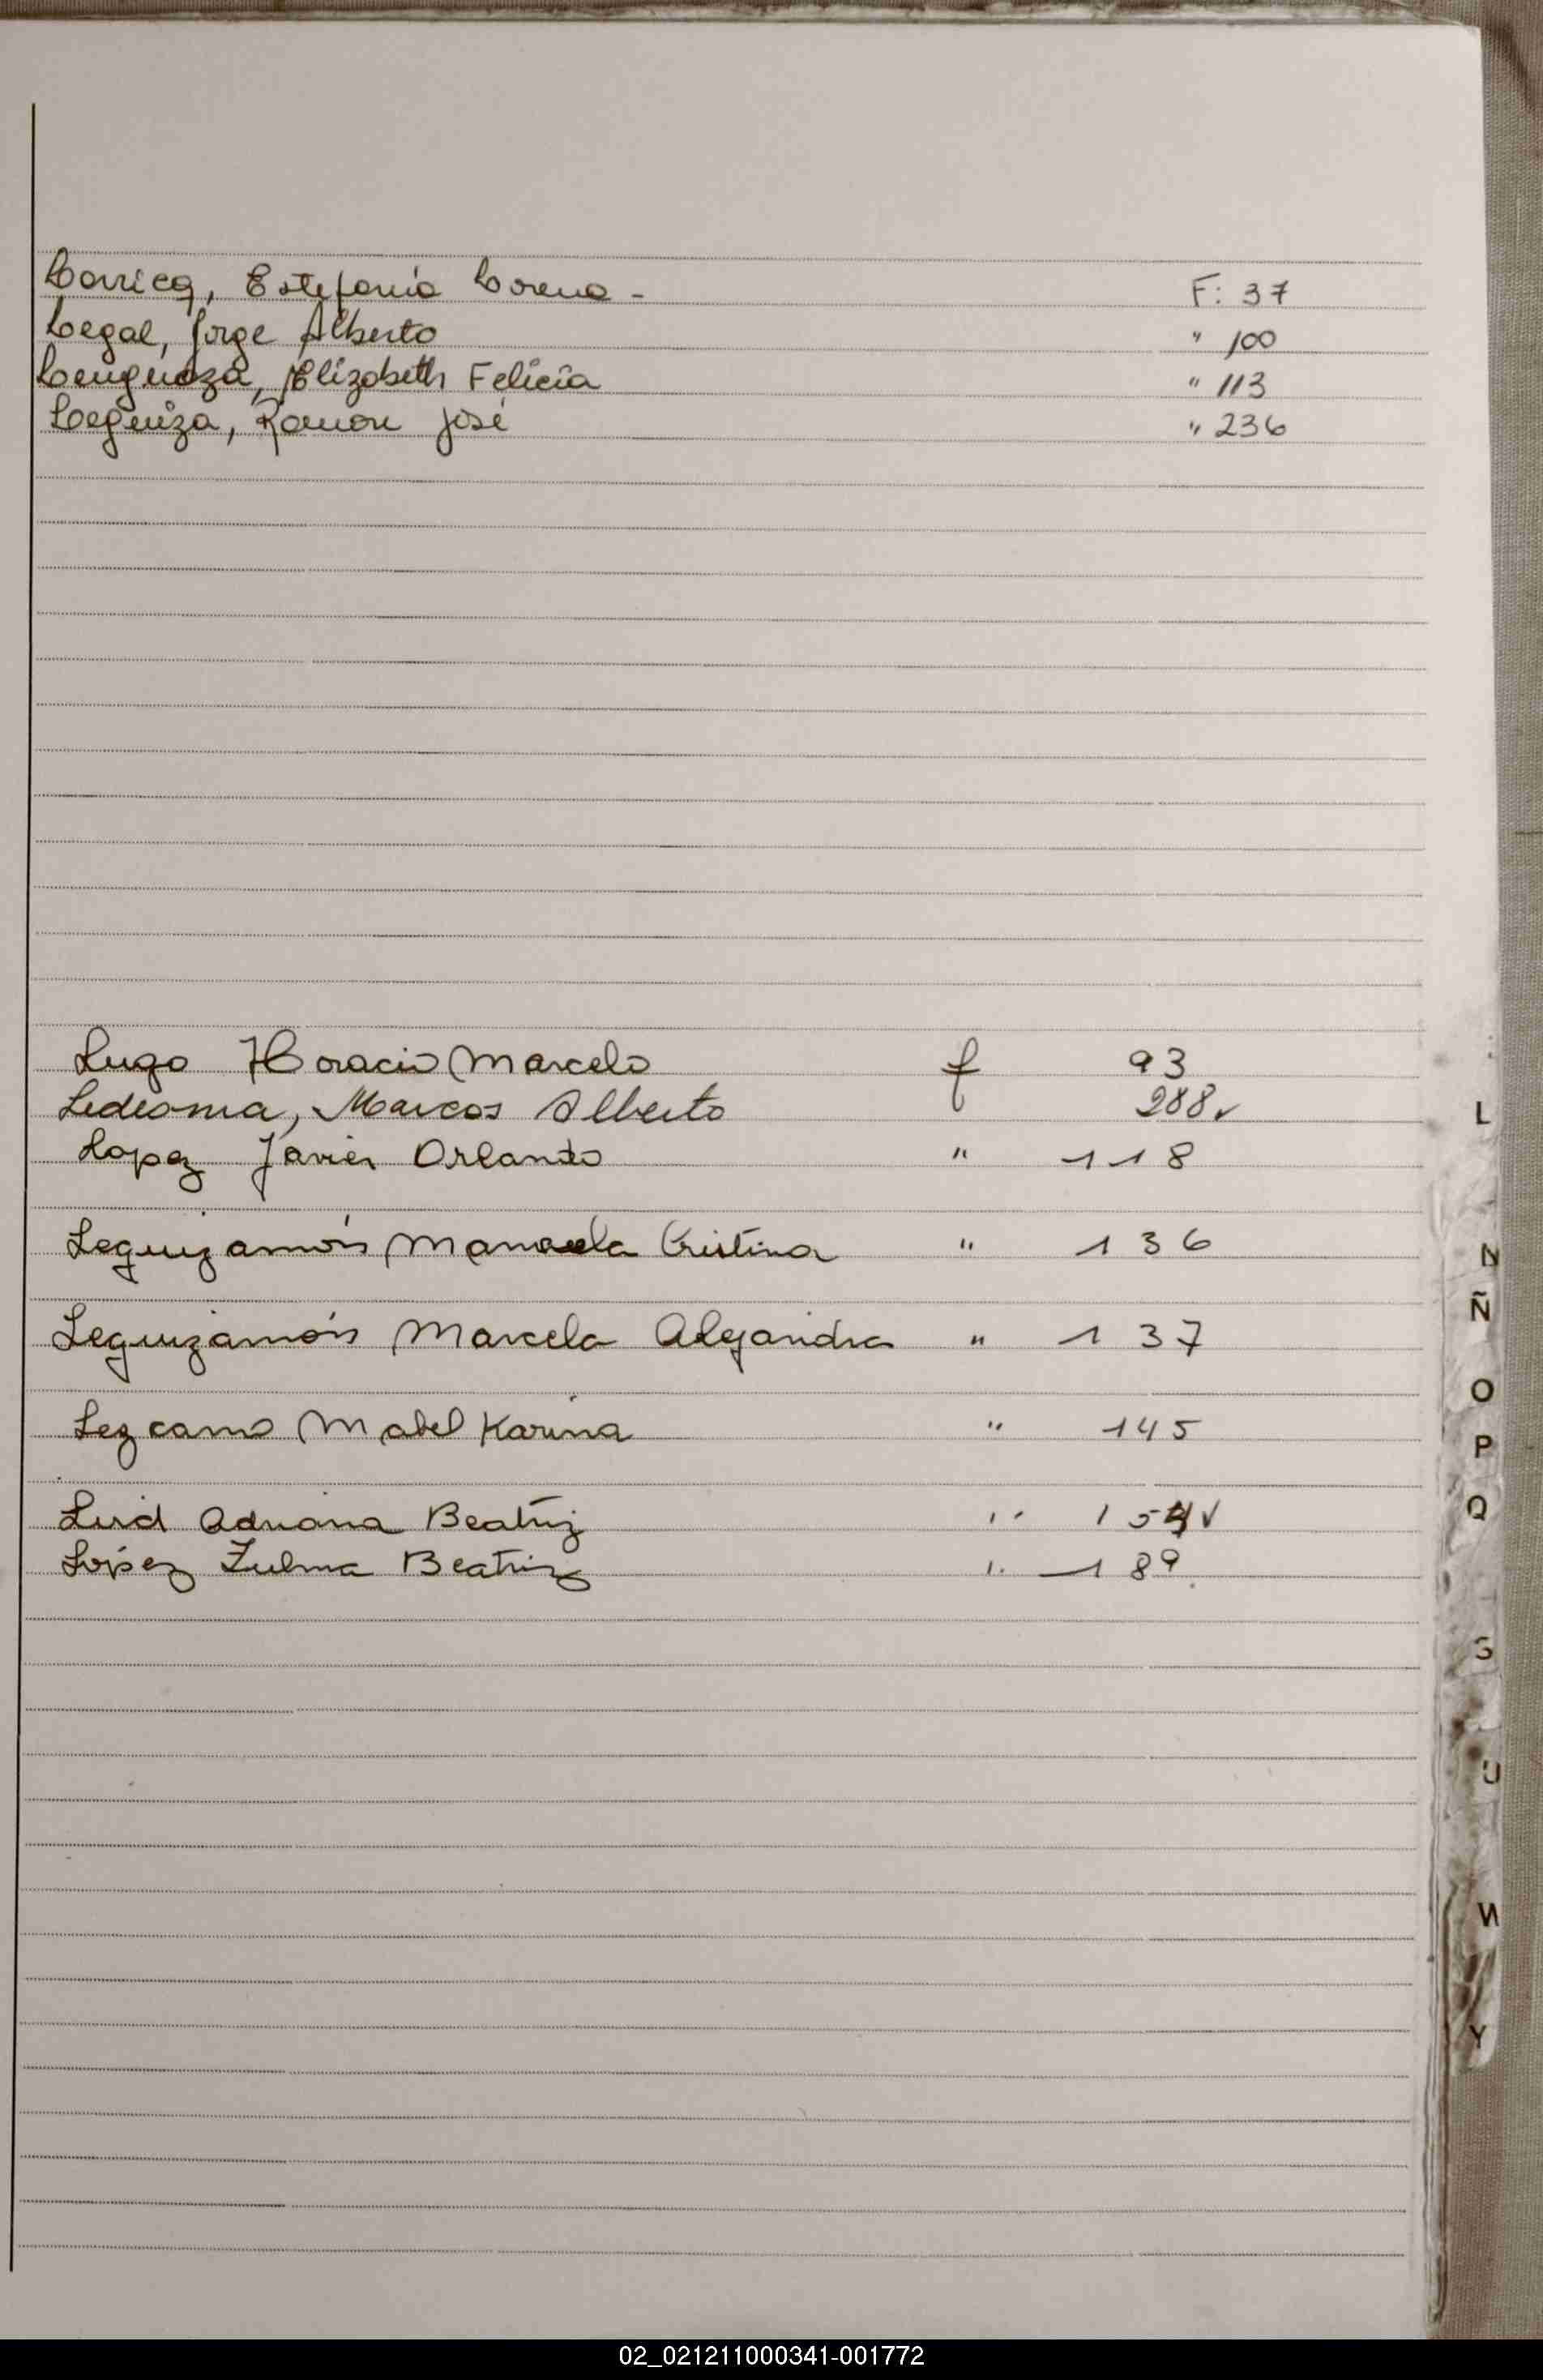 Larricq, Estefania Lorena - F: 37
Legal, Jorge Alberto " 100
Elizabeth Felicia " 113
Leguiza, Ramon José " 236
Lugo Horacio Marcelo f 93
Ledesma, Marcos Alberto 288v
Lopez Javier Orlando " 118
Leguizamón Cristina " 136
Leguizamón Marcela Alejandra " 137
Lezcano Mabel Karina " 145
Adriana Beatriz "
López Zulma Beatriz " 189
L
N
Ñ
O
P
Q
S
U
W
Y
02_021211000341-001772